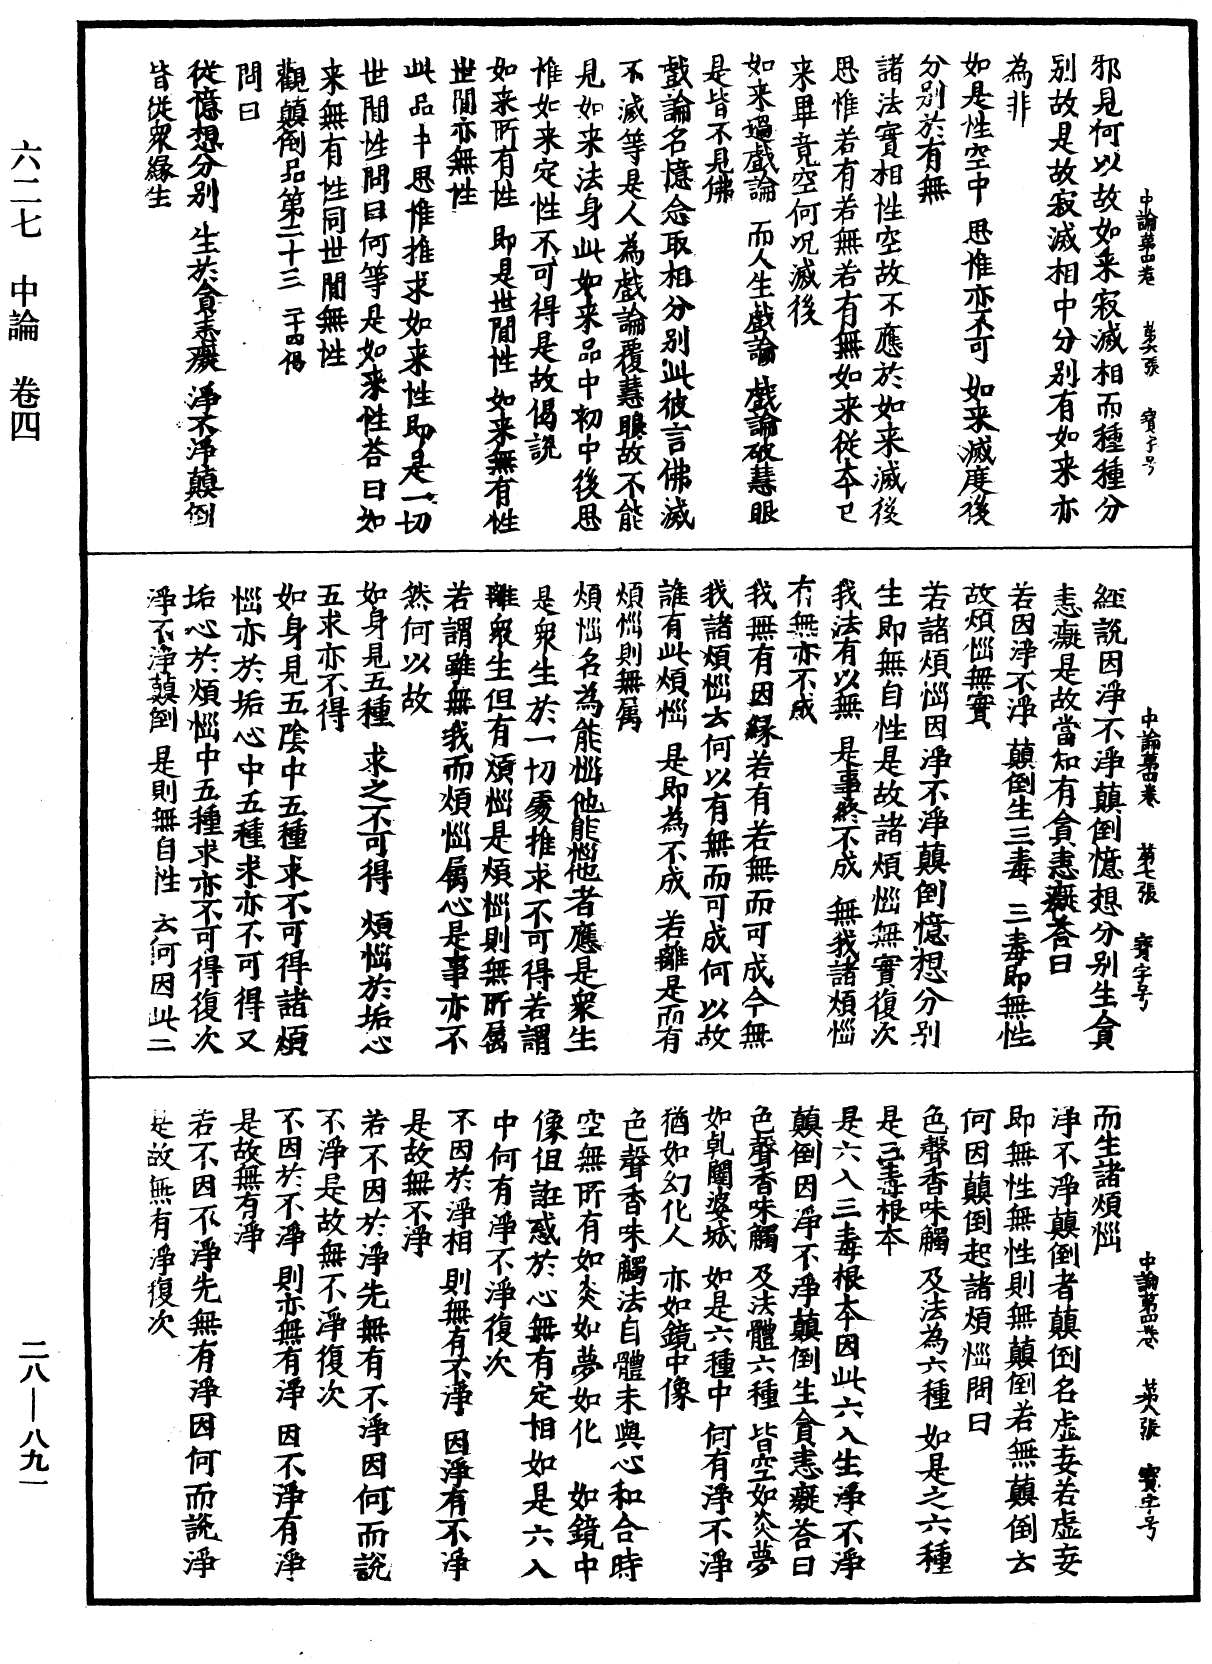 六二七　中論　卷四
二八—八九一
中論第四卷　第六張　寶字号
邪見何以故如来寂滅相而種種分
别故是故寂滅相中分别有如来亦
為非
如是性空中　思惟亦不可　如来滅度後
分别於有無
諸法實相性空故不應於如来滅後
思惟若有若無若有無如来從本已
来畢竟空何况滅後
如来過戲論　而人生戲論　戲論破慧眼
是皆不見佛
戲論名憶念取相分别此彼言佛滅
不滅等是人為戲論覆慧眼故不能
見如来法身此如来品中初中後思
惟如来定性不可得是故偈說
如来所有性　即是世間性　如来無有性
世間亦無性
此品中思惟推求如来性即是一切
世間性問曰何等是如来性荅曰如
来無有性同世間無性
觀顛倒品第二十三　二十四偈
問曰
從憶想分别　生於貪恚癡　淨不淨顛倒
皆從衆緣生
中論第四卷　第七張　寶字号
經說因淨不淨顛倒憶想分别生貪
恚癡是故當知有貪恚癡荅曰
若因淨不淨　顛倒生三毒　三毒即無性
故煩惱無實
若諸煩惱因淨不淨顛倒憶想分别
生即無自性是故諸煩惱無實復次
我法有以無　是事終不成　無我諸煩惱
有無亦不成
我無有因緣若有若無而可成今無
我諸煩惱云何以有無而可成何以故
誰有此煩惱　是即為不成　若離是而有
煩惱則無屬
煩惱名為能惱他能惱他者應是衆生
是衆生於一切處推求不可得若謂
離衆生但有煩惱是煩惱則無所屬
若謂雖無我而煩惱屬心是事亦不
然何以故
如身見五種　求之不可得　煩惱於垢心
五求亦不得
如身見五陰中五種求不可得諸煩
惱亦於垢心中五種求亦不可得又
垢心於煩惱中五種求亦不可得復次
淨不淨顛倒　是則無自性　云何因此二
中論第四卷　第八張　寶字号
而生諸煩惱
淨不淨顛倒者顛倒名虚妄若虚妄
即無性無性則無顛倒若無顛倒云
何因顛倒起諸煩惱問曰
色聲香味觸　及法為六種　如是之六種
是三毒根本
是六入三毒根本因此六入生淨不淨
顛倒因淨不淨顛倒生貪恚癡荅曰
色聲香味觸　及法體六種　皆空如炎夢
如乾闥婆城　如是六種中　何有淨不淨
猶如幻化人　亦如鏡中像
色聲香味觸法自體未與心和合時
空無所有如炎如夢如化　如鏡中
像但誑惑於心無有定相如是六入
中何有淨不淨復次
不因於淨相　則無有不淨　因淨有不淨
是故無不淨
若不因於淨先無有不淨因何而說
不淨是故無不淨復次
不因於不淨　則亦無有淨　因不淨有淨
是故無有淨
若不因不淨先無有淨因何而說淨
是故無有淨復次